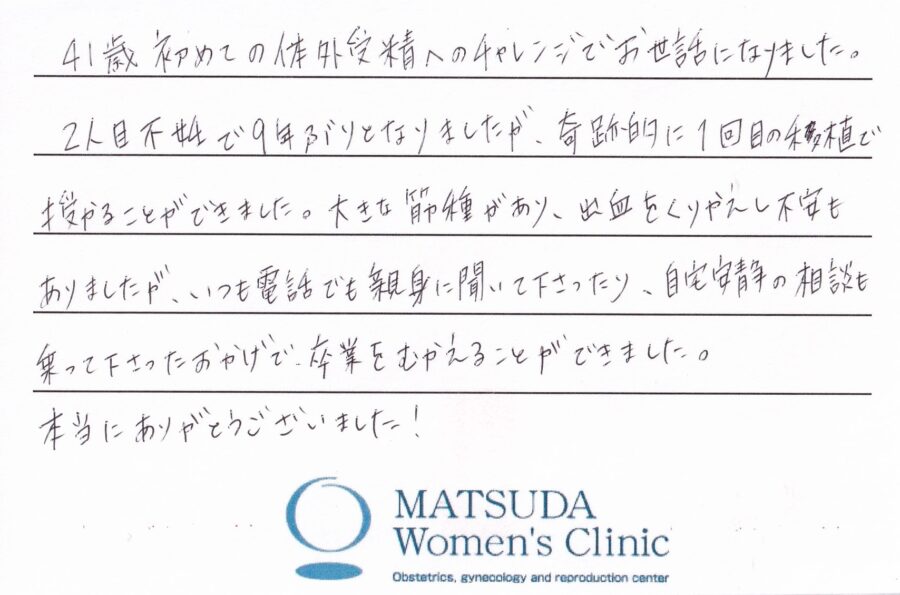 41歳初めての体外受精へのチャレンジでお世話になりました。
2人目不妊で9年ぶりとなりましたが、奇跡的に1回目の移植で
授かることができました。大きな筋種があり、出血をくりかえし不安も
ありましたが、いつも電話でも親身に聞いて下さったり、自宅安静の相談も
乗って下さったおかげで、卒業をむかえることができました。
本当にありがとうございました!
MATSUDA
Women's Clinic
Obstetrics, gynecology and reproduction center